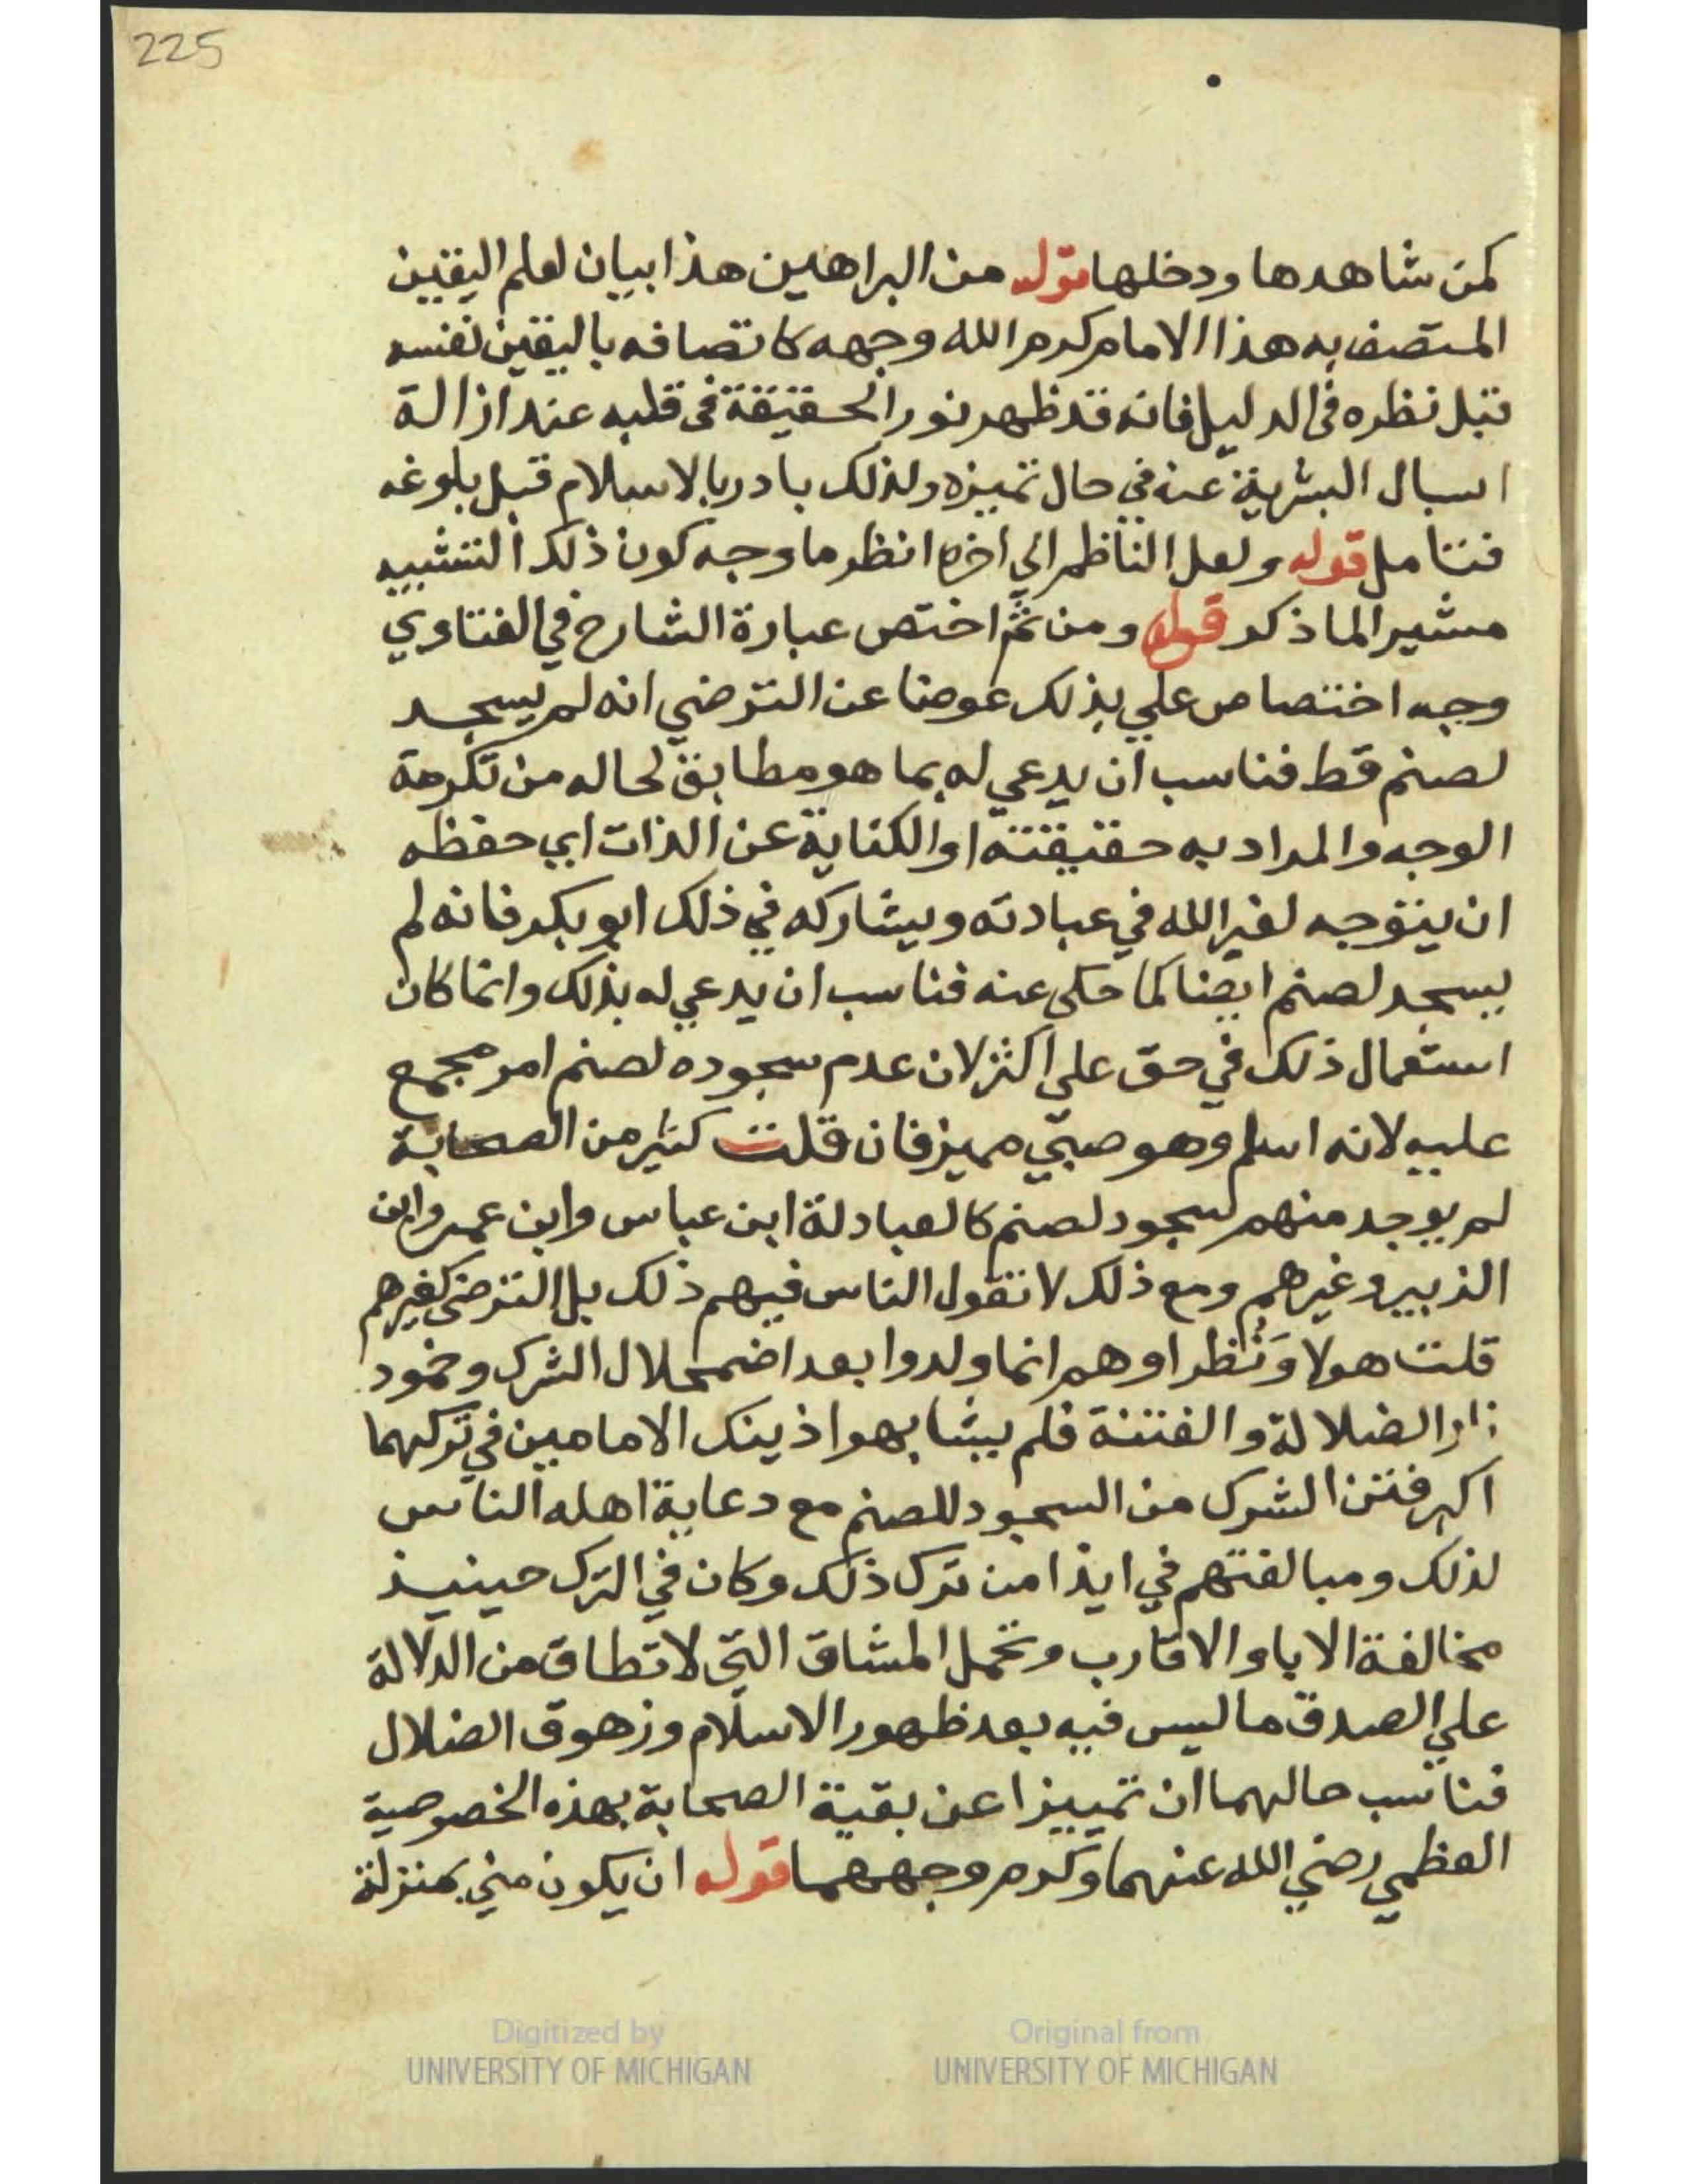 225
كمن شاهدها ودخلها قوله من البراهين هذا بيان لعلم اليقين
المتصف به هذا الامام كرم الله وجهه كاتصافه باليقين نفسه
قبل نظره في الدليل فانه قد ظهر نور الحقيقة في قلبه عند ازالة
اسبال البشرية عنه في حال تميزه ولذلك بادر بالاسلام قبل بلوغه
فتامل قوله ولعل الناظم الي اخره انظر ما وجه كون ذلك التشبيه
مشيرا لما ذكر قوله ومن ثم اختص عبارة الشارح في الفتاوي
وجه اختصاص علي بذلك عوضا عن الترضي انه لم يسجد
لصنم قط فناسب ان يدعي له بما هو مطابق لحاله من تكرمة
الوجه والمراد به حقيقته او الكناية عن الذات اي حفظه
ان يتوجه لغير الله في عبادته ويشاركه في ذلك ابو بكر فانه لم
يسجد لصنم ايضا كما حكي عنه فناسب ان يدعي له بذلك وانما كان
استعمال ذلك في حق علي اكثر لان عدم سجوده لصنم امر مجمع
عليه لانه اسلم وهو صبي مميز فان قلت كثير من الصحابة
لم يوجد منهم سجود لصنم كالعبادلة ابن عباس وابن عمر وابن
الزبير وغيرهم ومع ذلك لا تقول الناس فيهم ذلك بل الترضي كغيرهم
قلت هولا ونظراوهم انما ولدوا بعد اضمحلال الشرك وخمود
نار الضلالة والفتنة فلم يشابهوا ذينك الامامين في تركهما
اكبر فتن الشرك من السجود للصنم مع دعاية اهله الناس
لذلك ومبالغتهم في ايذا من ترك ذلك وكان في الترك حينيذ
مخالفة الابا والاقارب وتحمل المشاق التي لا تطاق من الدلالة
علي الصدق ما ليس فيه بعد ظهور الاسلام وزهوق الضلال
فناسب حالهما ان تمييزا عن بقية الصحابة بهذه الخصوصية
العظمي رضي الله عنهما وكرم وجههما قوله ان يكون مني بمنزلة
Digitized by
UNIVERSITY OF MICHIGAN
Original from
UNIVERSITY OF MICHIGAN